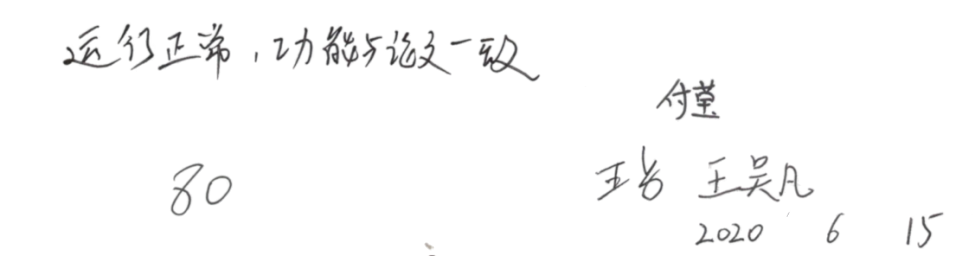 运行正常,功能与论文一致
付莹
80
王 王昊凡
2020 6 15